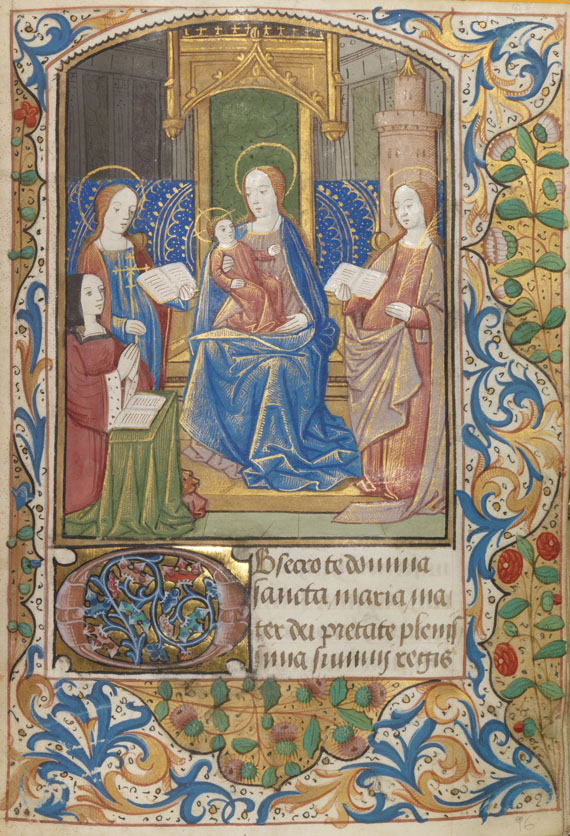 Obsecro te domina
sancta maria ma
ter dei pietate pleniſ
sima summi regis
96